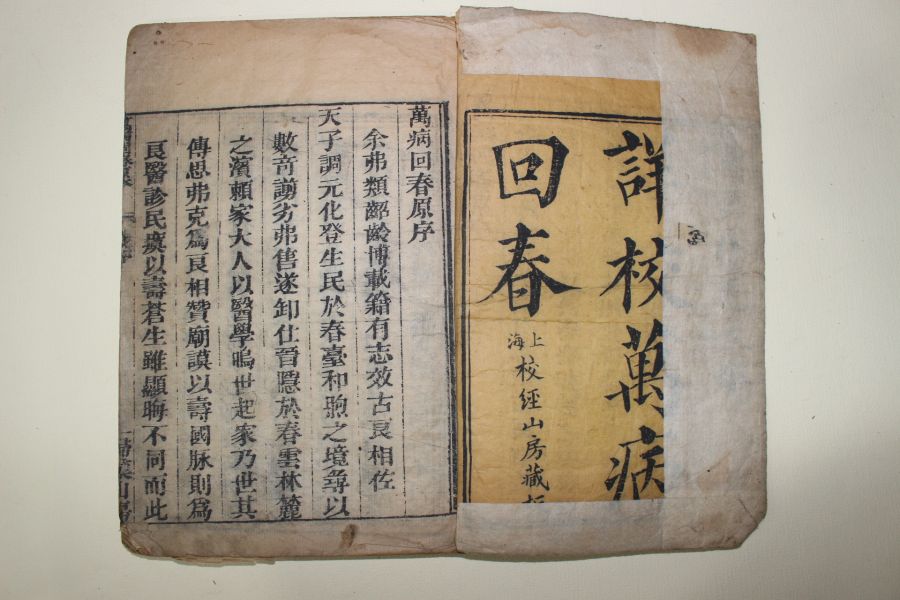 詳校萬病
回春
上海
校經山房藏板
萬病回春原序
余弗類齠齡博載籍有志效古良相佐
天子調元化登生民於春臺和煦之境尋以
數奇謭劣弗售遂卸仕晉隱於春雲林麓
之濱賴家大人以醫學鳴世起家乃世其
傳思弗克為良相贊廟謨以壽國脉則為
良醫診民瘼以壽蒼生雖顯晦不同而此